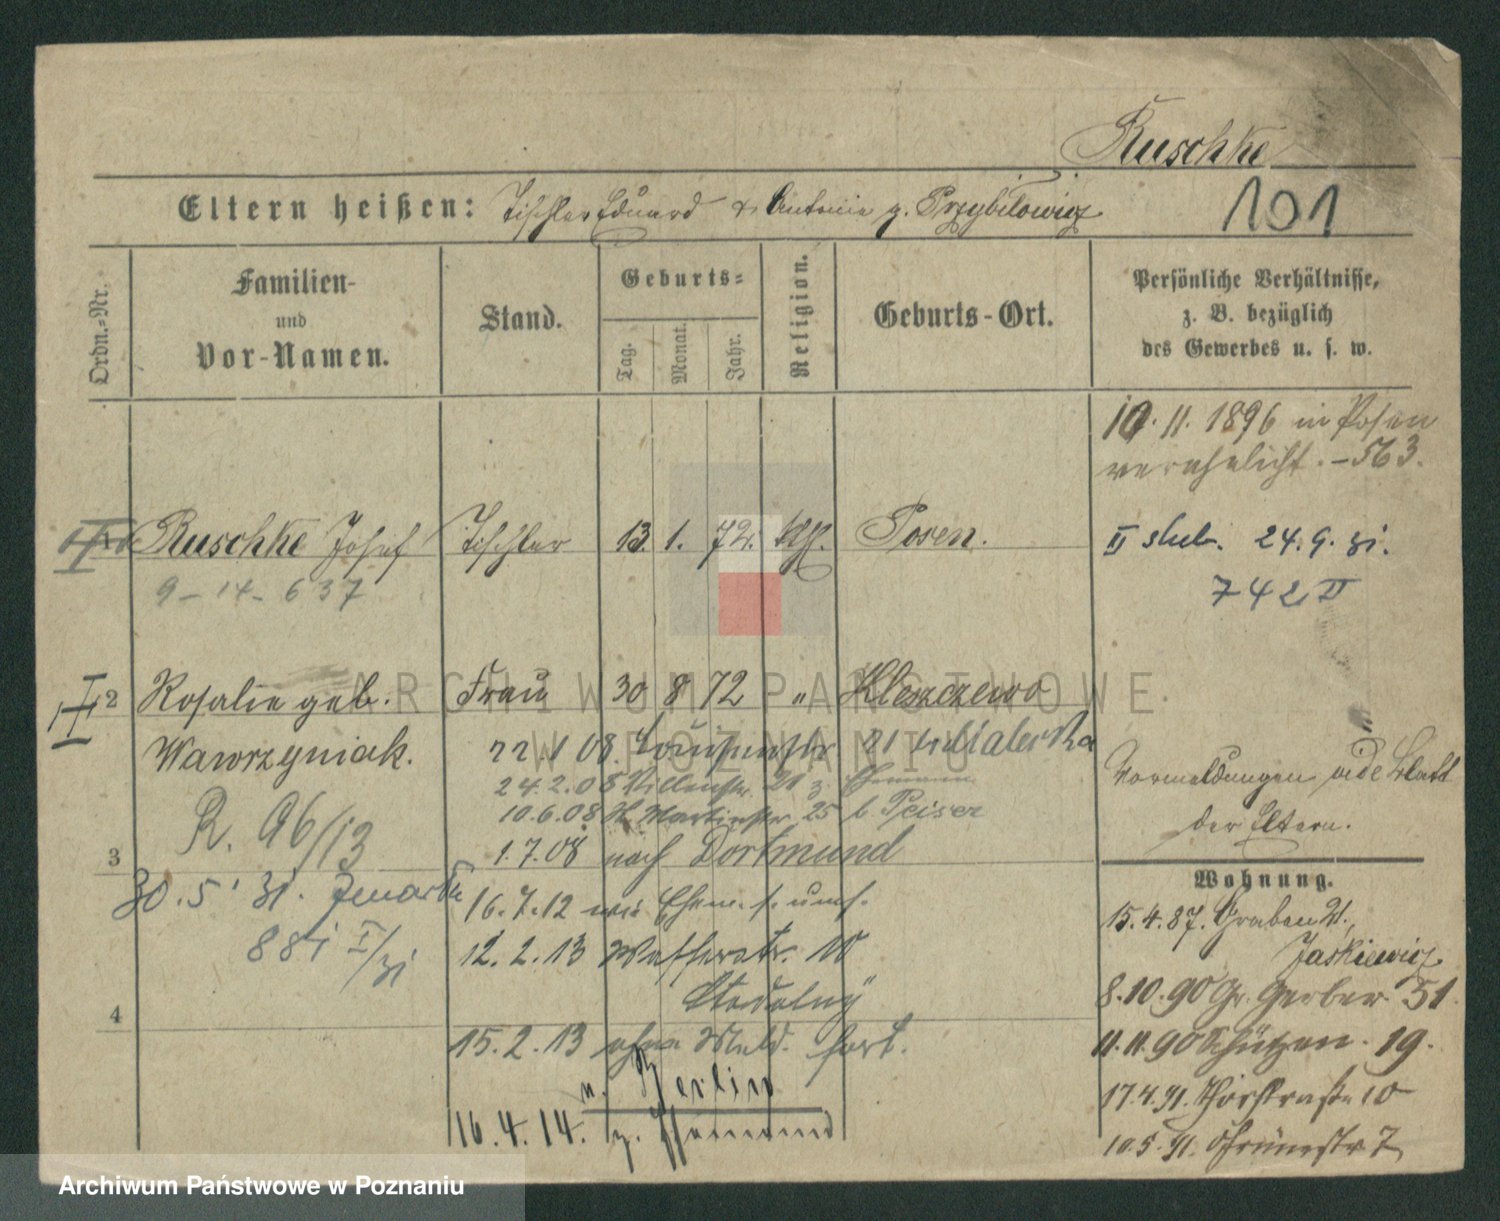 Ruschke
Eltern heißen: Tischler Eduard & Antonie g. Przybilowicz
101
Ordn.-Nr.
Familien-
und
Vor-Namen.
Stand.
Geburts-
Tag.
Monat.
Jahr.
Religion.
Geburts-Ort.
Persönliche Verhältnisse,
z. B. bezüglich
des Gewerbes u. s. w.
10. 11. 1896 in Posen
verehelicht. - 563.
Ruschke Josef Tischler 13. 1. 72. Posen.
II slub. 24. 9. 31.
9 - 14 - 637
742 II
2 Rosalie geb. Frau 30 8 72 " Kleszczewo
Wawrzyniak.
22 1 08. Louisenstr 21
24.2.08 21 z. Ehemann
10.6.08 St. Martinstr. 25 b. Peiser
1.7.08 nach Dortmund
R. 96/13
3
30.5' 31.
881 I/31
16.7.12 Ehem. s. umf.
12. 2. 13 Wasserstr. 10
4
15. 2. 13 ohne Meld. fort.
n. Berlin
16. 4. 14. z. Ehemann
Vormeldungen vide Blatt
der Eltern.
Wohnung.
15.4.87. Graben 21,
Jaskiewicz
8.10.90 Gr. Gerber 51
11.11.90 Schützen. 19.
17.4.91. Thorstraße 10
10.5.91. Grünestr 7
ARCHIWUM PAŃSTWOWE
W POZNANIU
Archiwum Państwowe w Poznaniu